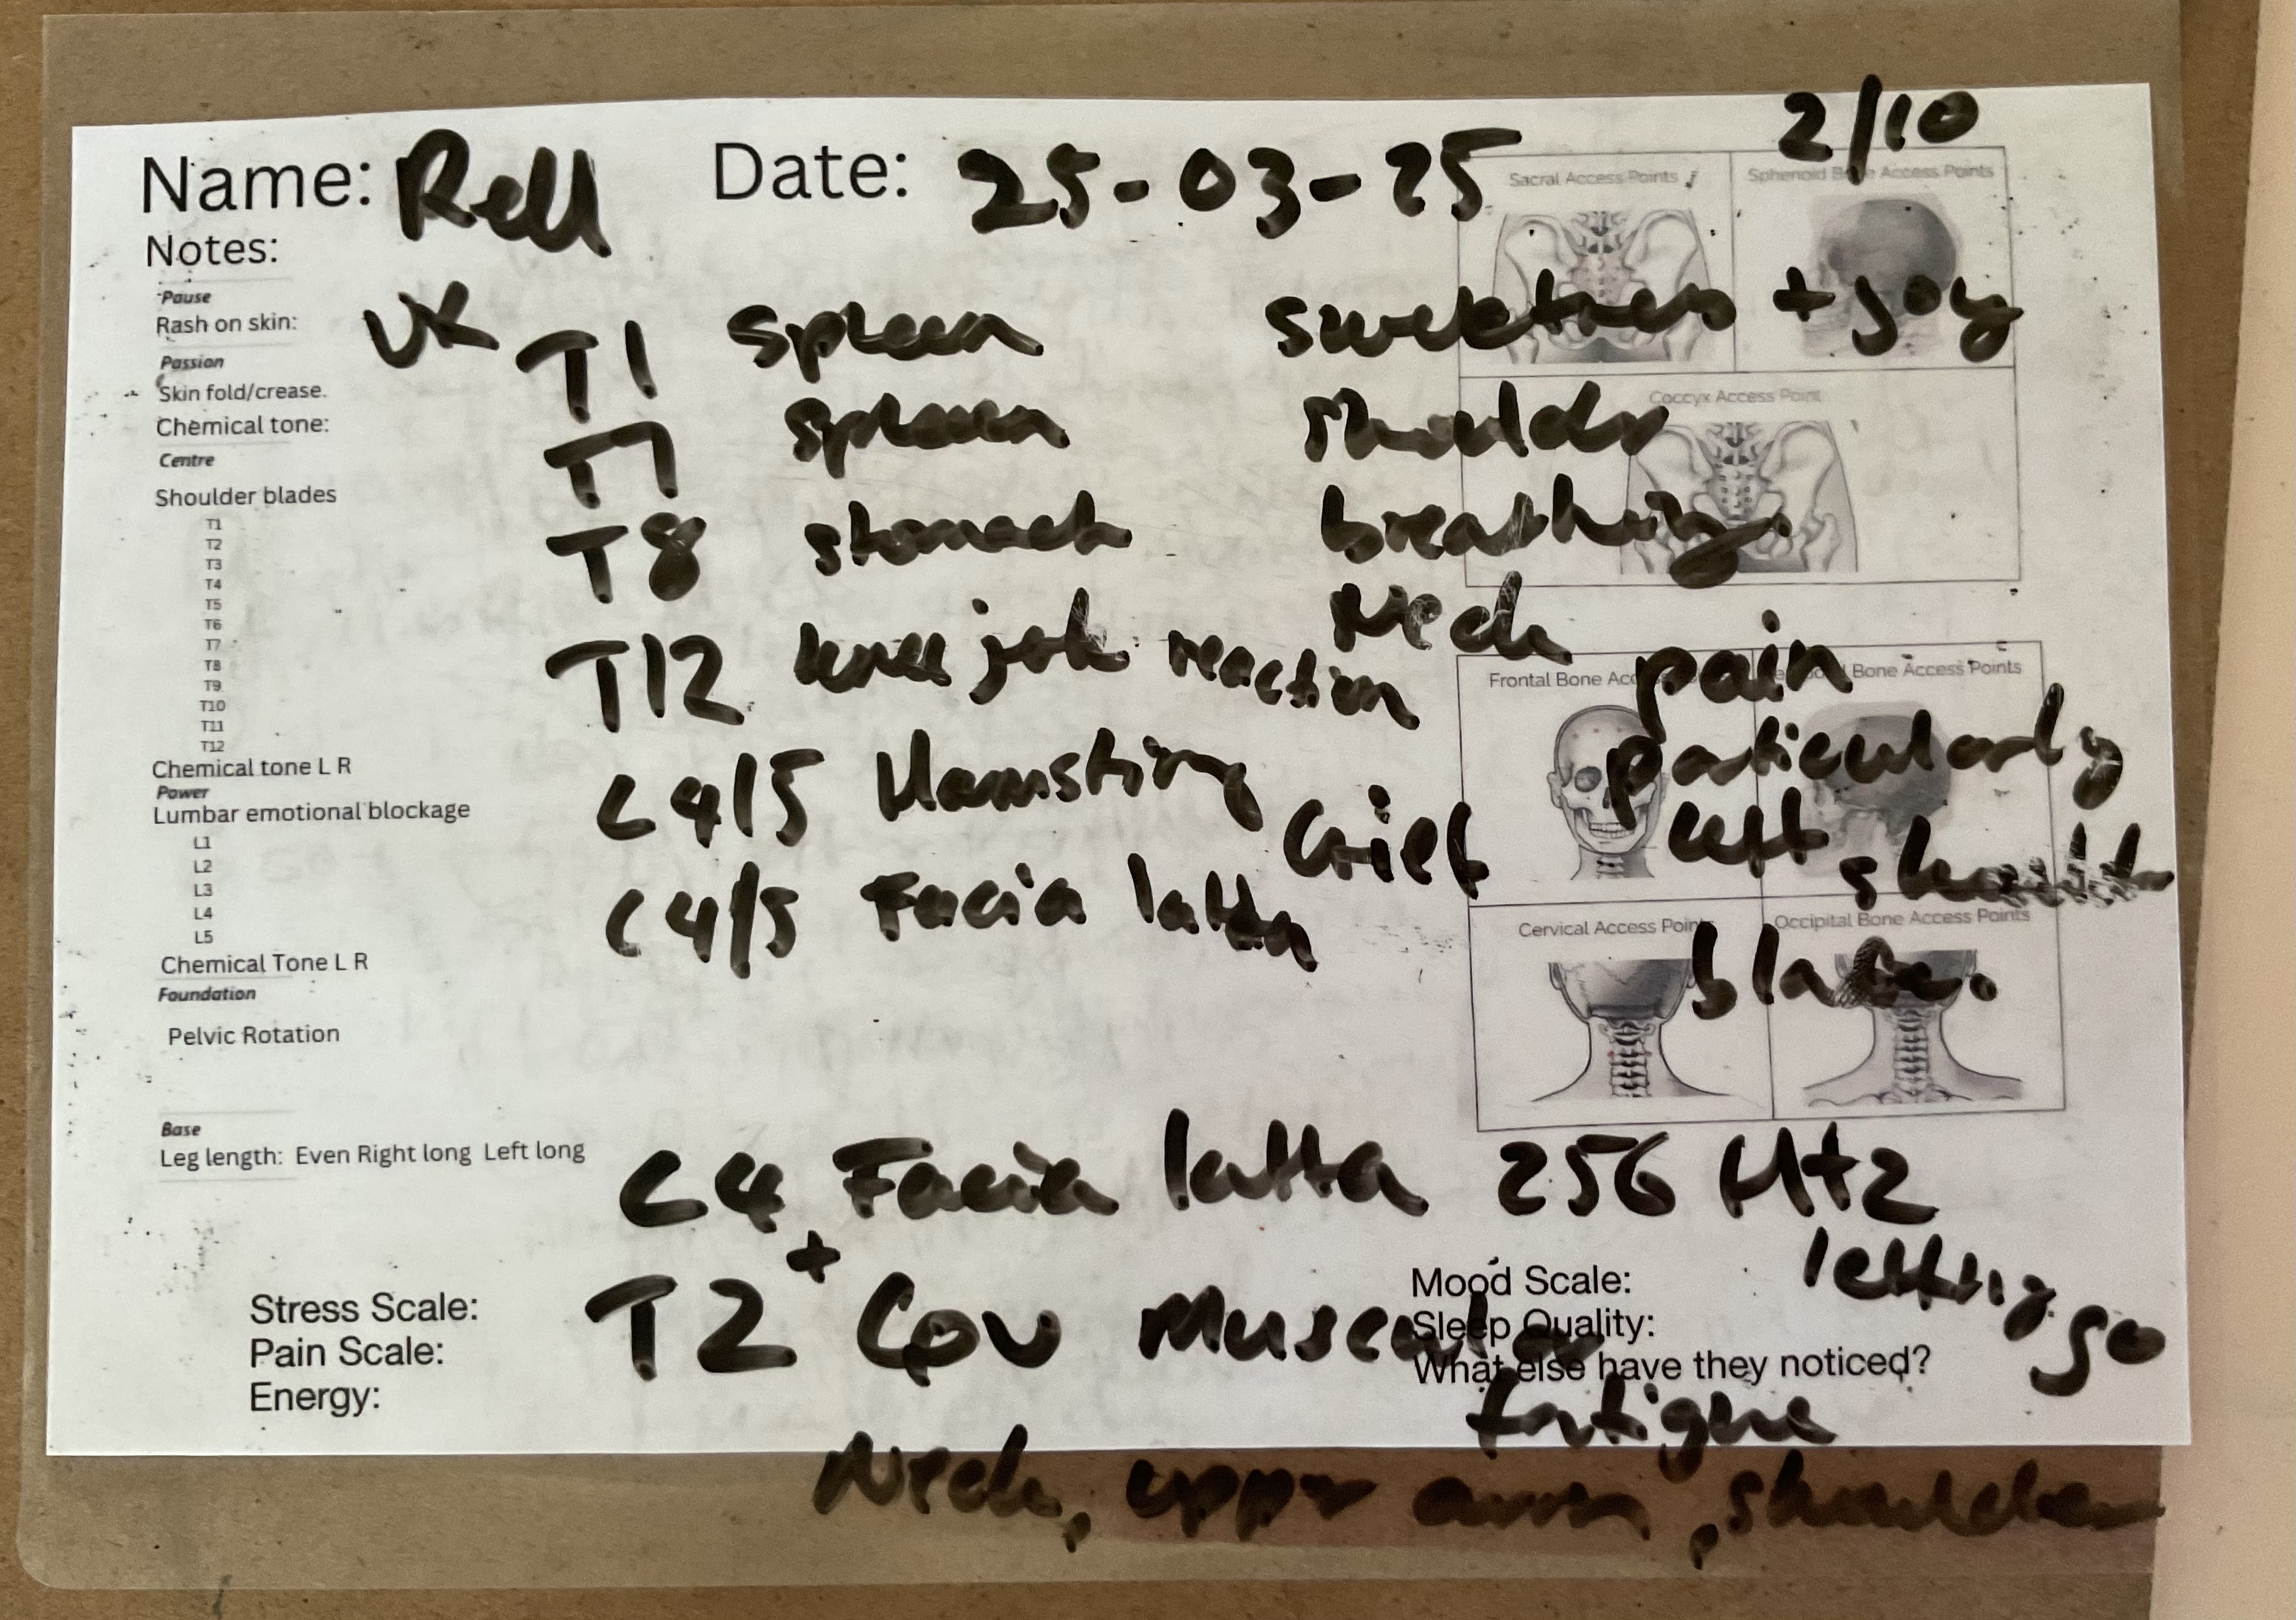 2/10
Name: Rell Date: 25-03-25
Sacral Access Points Sphenoid Bone Access Points
Notes:
Pause
Rash on skin:
UK T1 spleen sweetness + joy
Passion
Skin fold/crease.
Chemical tone:
T7 spleen shoulder
Coccyx Access Point
Centre
Shoulder blades
T8 stomach breathing.
T1
T2
T3
T4
T5
T6
T7
T8
T9
T10
T11
T12
T12 knee jerk reaction Neck pain
Frontal Bone Bone Access Points
particularly
left
blade.
Chemical tone L R
Power
Lumbar emotional blockage
C4/5 Hamstring Grief
L1
L2
L3
L4
L5
C4/5 Facia latta
Cervical Access Points Occipital Bone Access Points
Chemical Tone L R
Foundation
Pelvic Rotation
Base
Leg length: Even Right long Left long
C4 Facia latta 256 Htz
+
letting go
T2 Muscular fatigue
Stress Scale:
Pain Scale:
Energy:
Mood Scale:
Sleep Quality:
What else have they noticed?
Neck, upper arm, shoulder